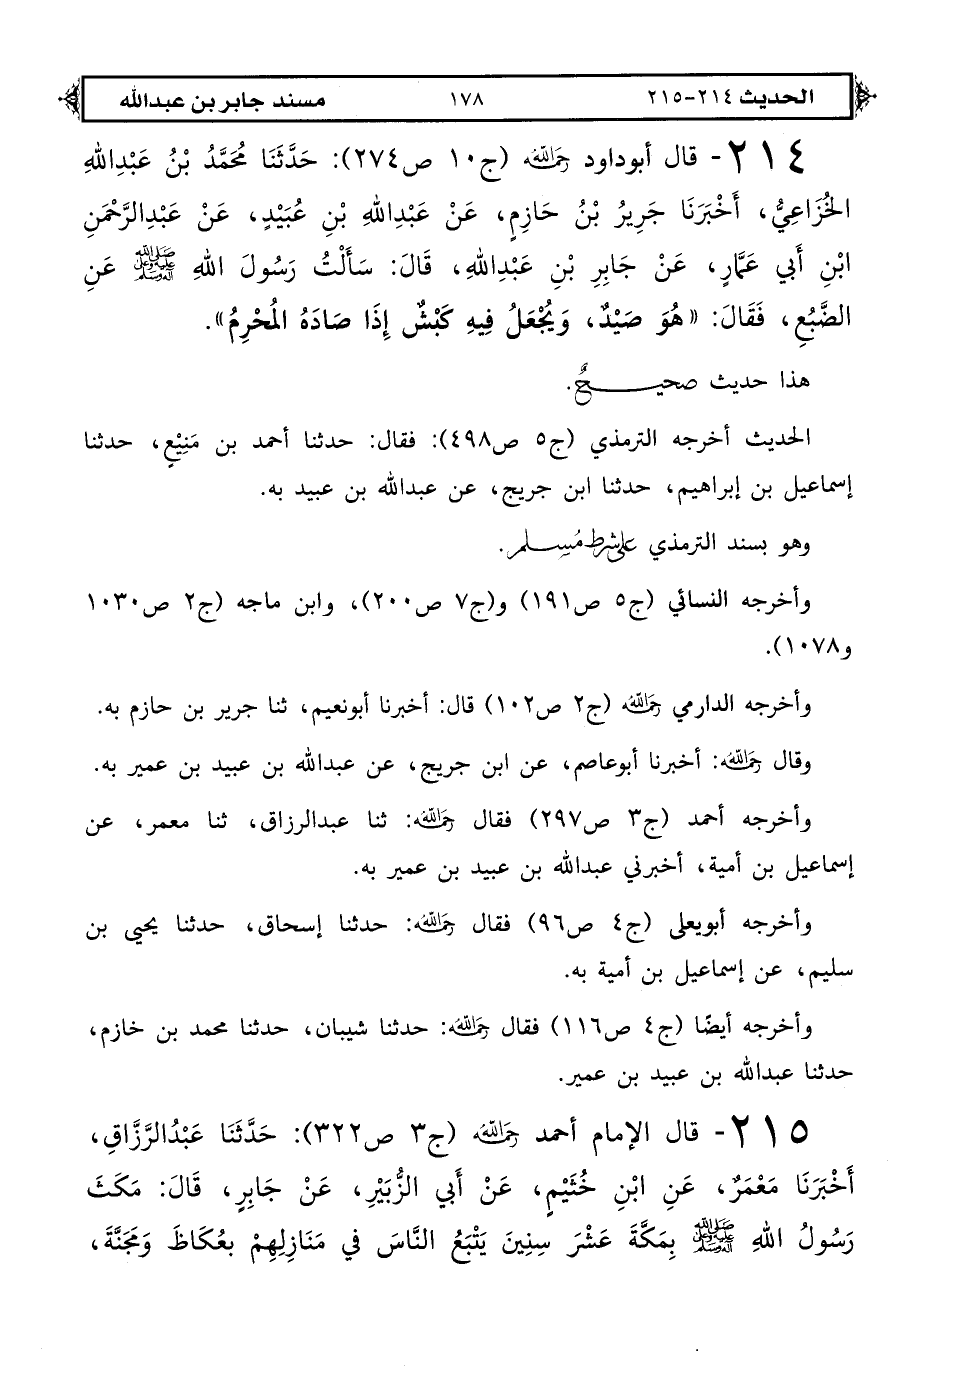 الحديث ٢١٤-٢١٥ ١٧٨ مسند جابر بن عبدالله
٢١٤- قال أبوداود رَحِمَهُ اللهُ (ج١٠ ص٢٧٤): حَدَّثَنَا مُحَمَّدُ بْنُ عَبْدِاللهِ
الخُزَاعِيُّ، أَخْبَرَنَا جَرِيرُ بْنُ حَازِمٍ، عَنْ عَبْدِاللهِ بْنِ عُبَيْدٍ، عَنْ عَبْدِالرَّحْمَنِ
ابْنِ أَبِي عَمَّارٍ، عَنْ جَابِرِ بْنِ عَبْدِاللهِ، قَالَ: سَأَلْتُ رَسُولَ اللهِ صلى الله عليه وعلى آله وسلم عَنِ
الضَّبُعِ، فَقَالَ: «هُوَ صَيْدٌ، وَيُجْعَلُ فِيهِ كَبْشٌ إِذَا صَادَهُ المُحْرِمُ».
هذا حديث صحيحٌ.
الحديث أخرجه الترمذي (ج٥ ص٤٩٨): فقال: حدثنا أحمد بن مَنِيْعٍ، حدثنا
إسماعيل بن إبراهيم، حدثنا ابن جريج، عن عبدالله بن عبيد به.
وهو بسند الترمذي على شرط مُسِلم.
وأخرجه النسائي (ج٥ ص١٩١) و(ج٧ ص٢٠٠)، وابن ماجه (ج٢ ص١٠٣٠
و١٠٧٨).
وأخرجه الدارمي رَحِمَهُ اللهُ (ج٢ ص١٠٢) قال: أخبرنا أبونعيم، ثنا جرير بن حازم به.
وقال رَحِمَهُ اللهُ: أخبرنا أبوعاصم، عن ابن جريج، عن عبدالله بن عبيد بن عمير به.
وأخرجه أحمد (ج٣ ص٢٩٧) فقال رَحِمَهُ اللهُ: ثنا عبدالرزاق، ثنا معمر، عن
إسماعيل بن أمية، أخبرني عبدالله بن عبيد بن عمير به.
وأخرجه أبويعلى (ج٤ ص٩٦) فقال رَحِمَهُ اللهُ: حدثنا إسحاق، حدثنا يحيى بن
سليم، عن إسماعيل بن أمية به.
وأخرجه أيضًا (ج٤ ص١١٦) فقال رَحِمَهُ اللهُ: حدثنا شيبان، حدثنا محمد بن خازم،
حدثنا عبدالله بن عبيد بن عمير.
٢١٥- قال الإمام أحمد رَحِمَهُ اللهُ (ج٣ ص٣٢٢): حَدَّثَنَا عَبْدُالرَّزَّاقِ،
أَخْبَرَنَا مَعْمَرٌ، عَنِ ابْنِ خُثَيْمٍ، عَنْ أَبِي الزُّبَيْرِ، عَنْ جَابِرٍ، قَالَ: مَكَثَ
رَسُولُ اللهِ صلى الله عليه وعلى آله وسلم بِمَكَّةَ عَشْرَ سِنِينَ يَتْبَعُ النَّاسَ فِي مَنَازِلِهِمْ بِعُكَاظَ وَمَجَنَّةَ،